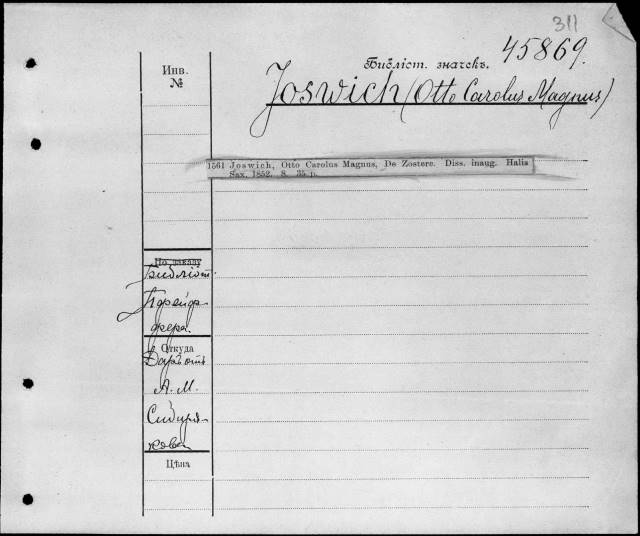 311
45869.
Инв.
№
Библіот. значекъ.
Joswich (Otto Carolus Magnus)
1561 Joswich, Otto Carolus Magnus, De Zostere. Diss. inaug. Halis
Sax. 1852. 8. 35 p.
Библіот.
Пфейф-
фера.
Откуда
Даръ отъ
А. М.
Сибиря-
кова
Цѣна